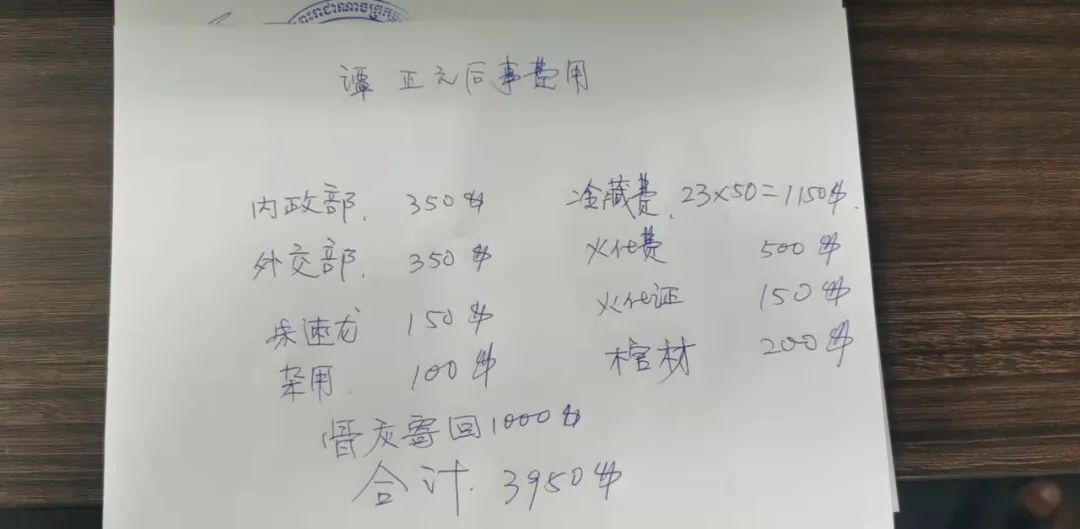 谭正元后事费用
内政部. 350$ 冷藏费. 23×50=1150$.
外交部. 350$ 火化费 500$
朱速龙 150$ 火化证 150$
杂用. 100$ 棺材 200$
骨灰寄回1000$
合计. 3950$